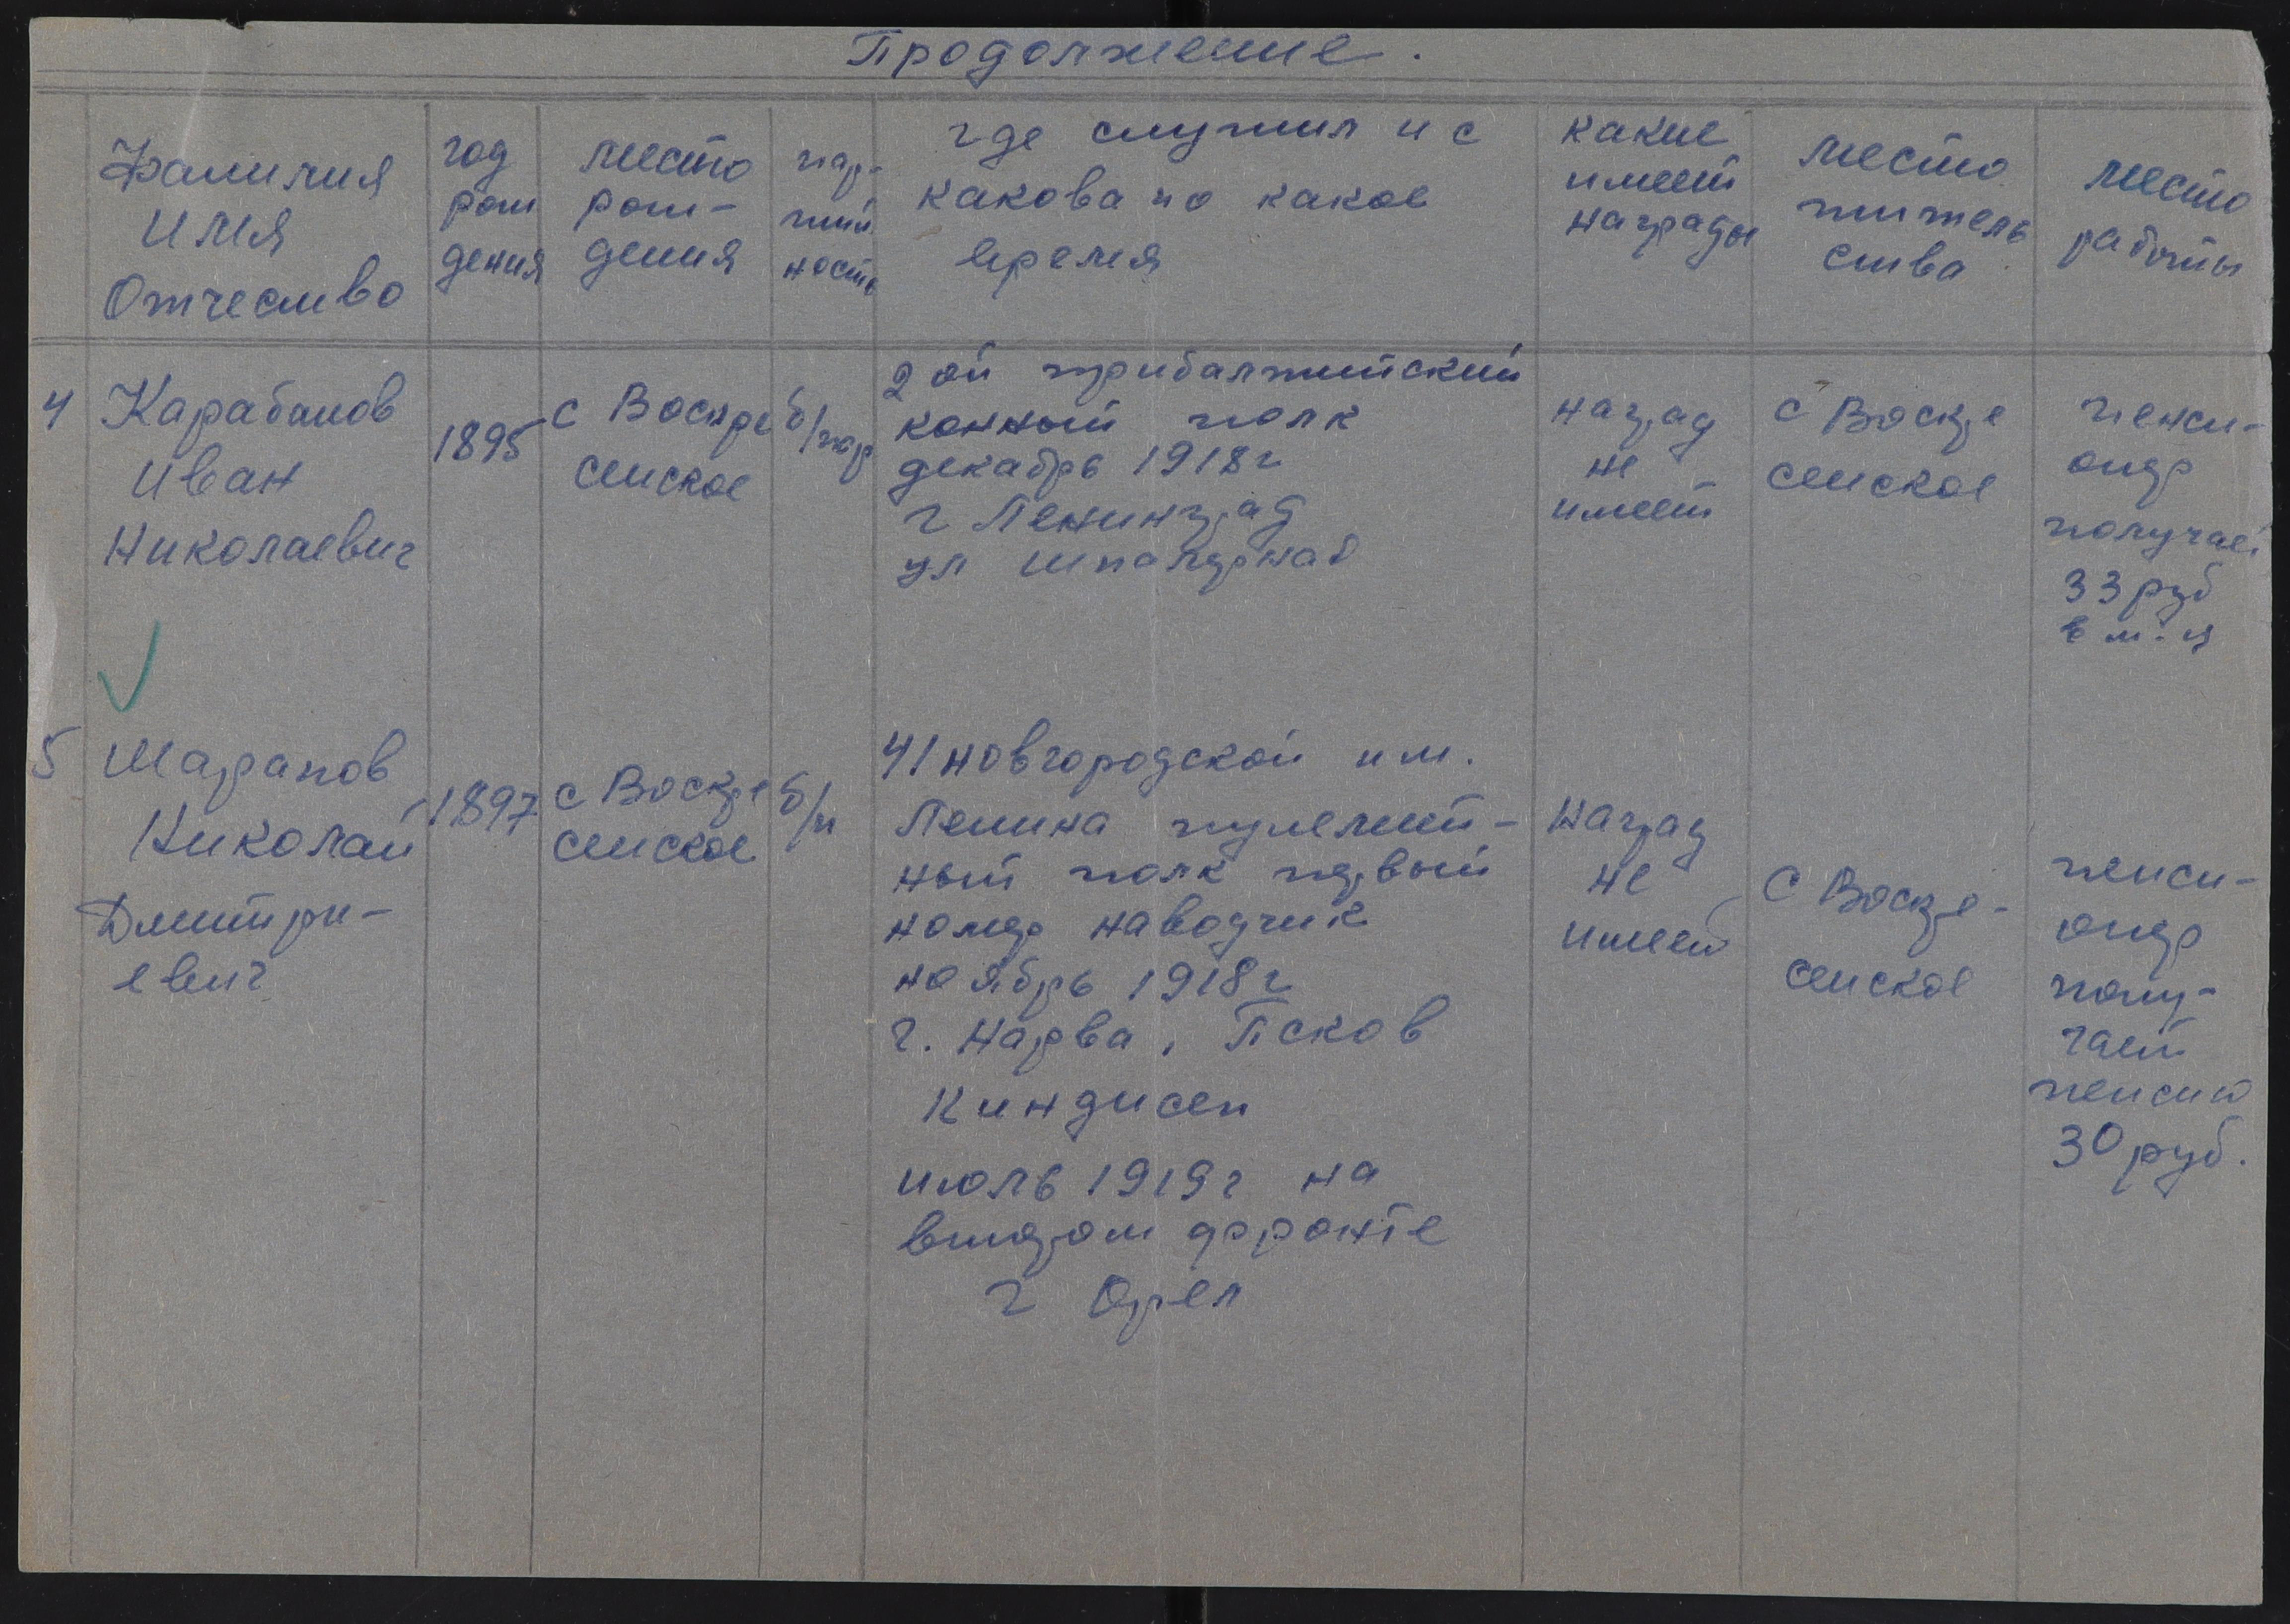 Продолжение.
Фамилия
имя
Отчество
год
рож
дения
место
рож-
дения
пар-
тий
ность
где служил и с
какова по какое
время
какие
имеет
награды
место
житель
ства
место
работы
4
Карабанов
Иван
Николаевич
1895
с Воскре
сенское
б/пар
2ой прибалтийский
конный полк
декабрь 1918г
г Ленинград
ул шпалерная
наград
не
имеет
с Воскре
сенское
пенси-
онер
получает
33 руб
в м-ц
5
Шарапов
Николай
Дмитри-
евич
1897
с Воскре
сенское
б/п
41 новгородской им.
Ленина пулемет-
ный полк первый
номер наводчик
ноябрь 1918г
г. Нарва, Псков
Киндисеп
июль 1919г на
втором фронте
г Орел
Наград
не
имеет
с Воскре-
сенское
пенси-
онер
полу-
чает
пенсию
30 руб.